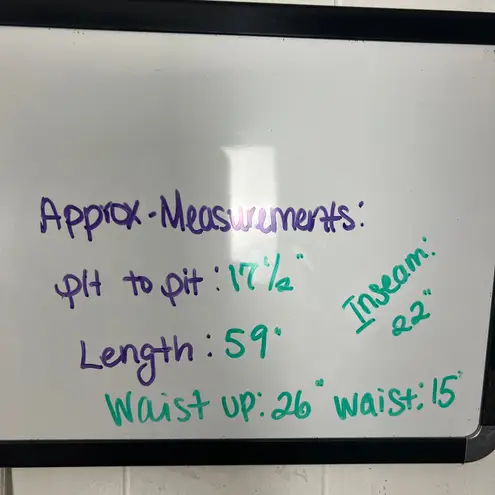 Approx. Measurements:
pit to pit: 17 1/2"
Length: 59"
Inseam:
22"
Waist up: 26" Waist: 15"